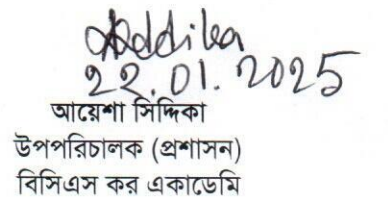 22.01.2025
আয়েশা সিদ্দিকা
উপপরিচালক (প্রশাসন)
বিসিএস কর একাডেমি